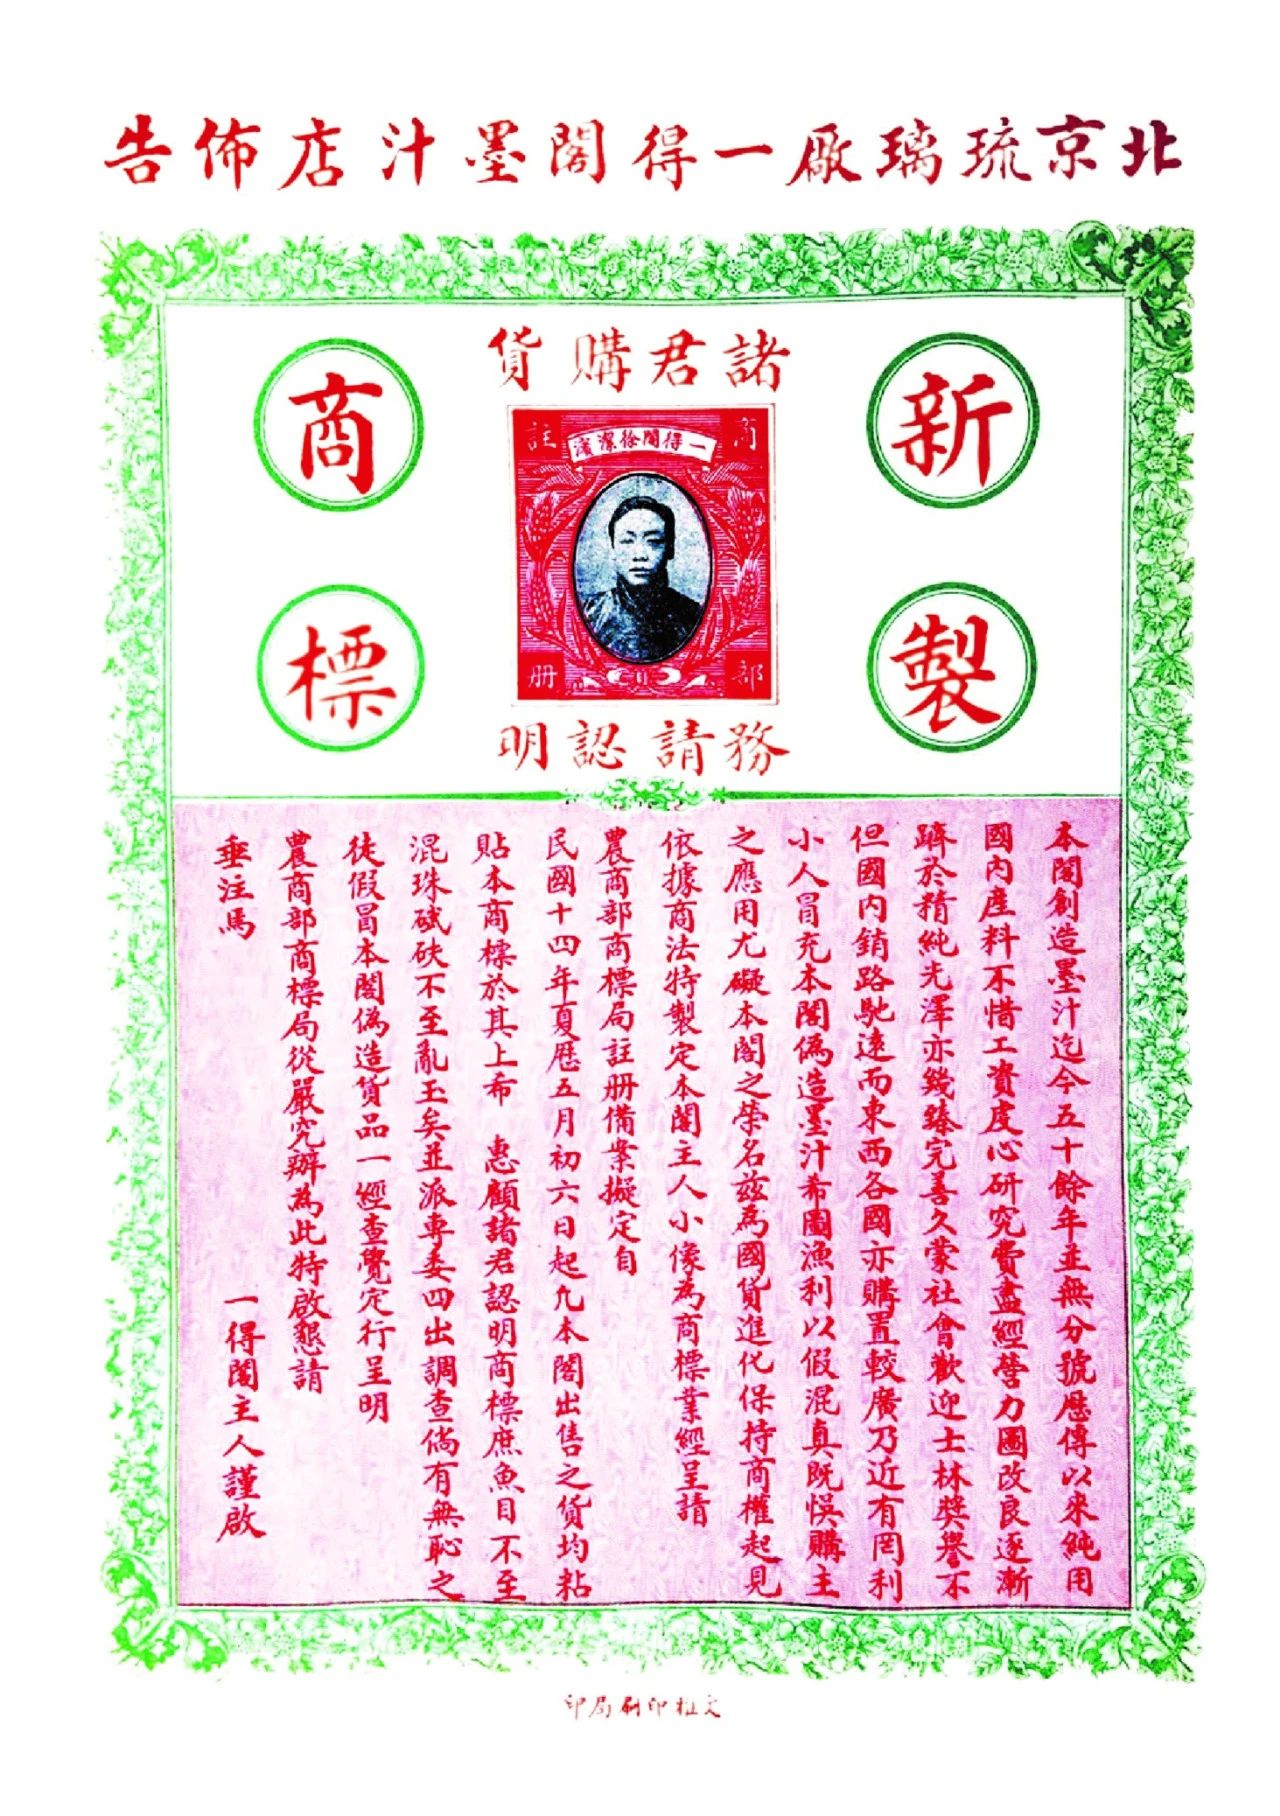 北京琉璃厰一得閣墨汁店佈告
新製
商標
諸君購貨
商
註
一得閣徐潔濱
部
册
務請認明
本閣創造墨汁迄今五十餘年並無分號歷傳以來純用
國內產料不惜工資虔心研究費盡經營力圖改良逐漸
躋於精純光澤亦幾臻完善久蒙社會歡迎士林獎譽不
但國內銷路馳遠而東西各國亦購置較廣乃近有罔利
小人冒充本閣偽造墨汁希圖漁利以假混真既悞購主
之應用尤礙本閣之榮名茲為國貨進化保持商權起見
依據商法特製定本閣主人小像為商標業經呈請
農商部商標局註册備案擬定自
民國十四年夏歷五月初六日起凢本閣出售之貨均粘
貼本商標於其上希 惠顧諸君認明商標庶魚目不至
混珠碔砆不至亂玉矣並派專委四出調查倘有無恥之
徒假冒本閣偽造貨品一經查覺定行呈明
農商部商標局從嚴究辦為此特啟懇請
垂注焉
一得閣主人謹啟
印刷局印